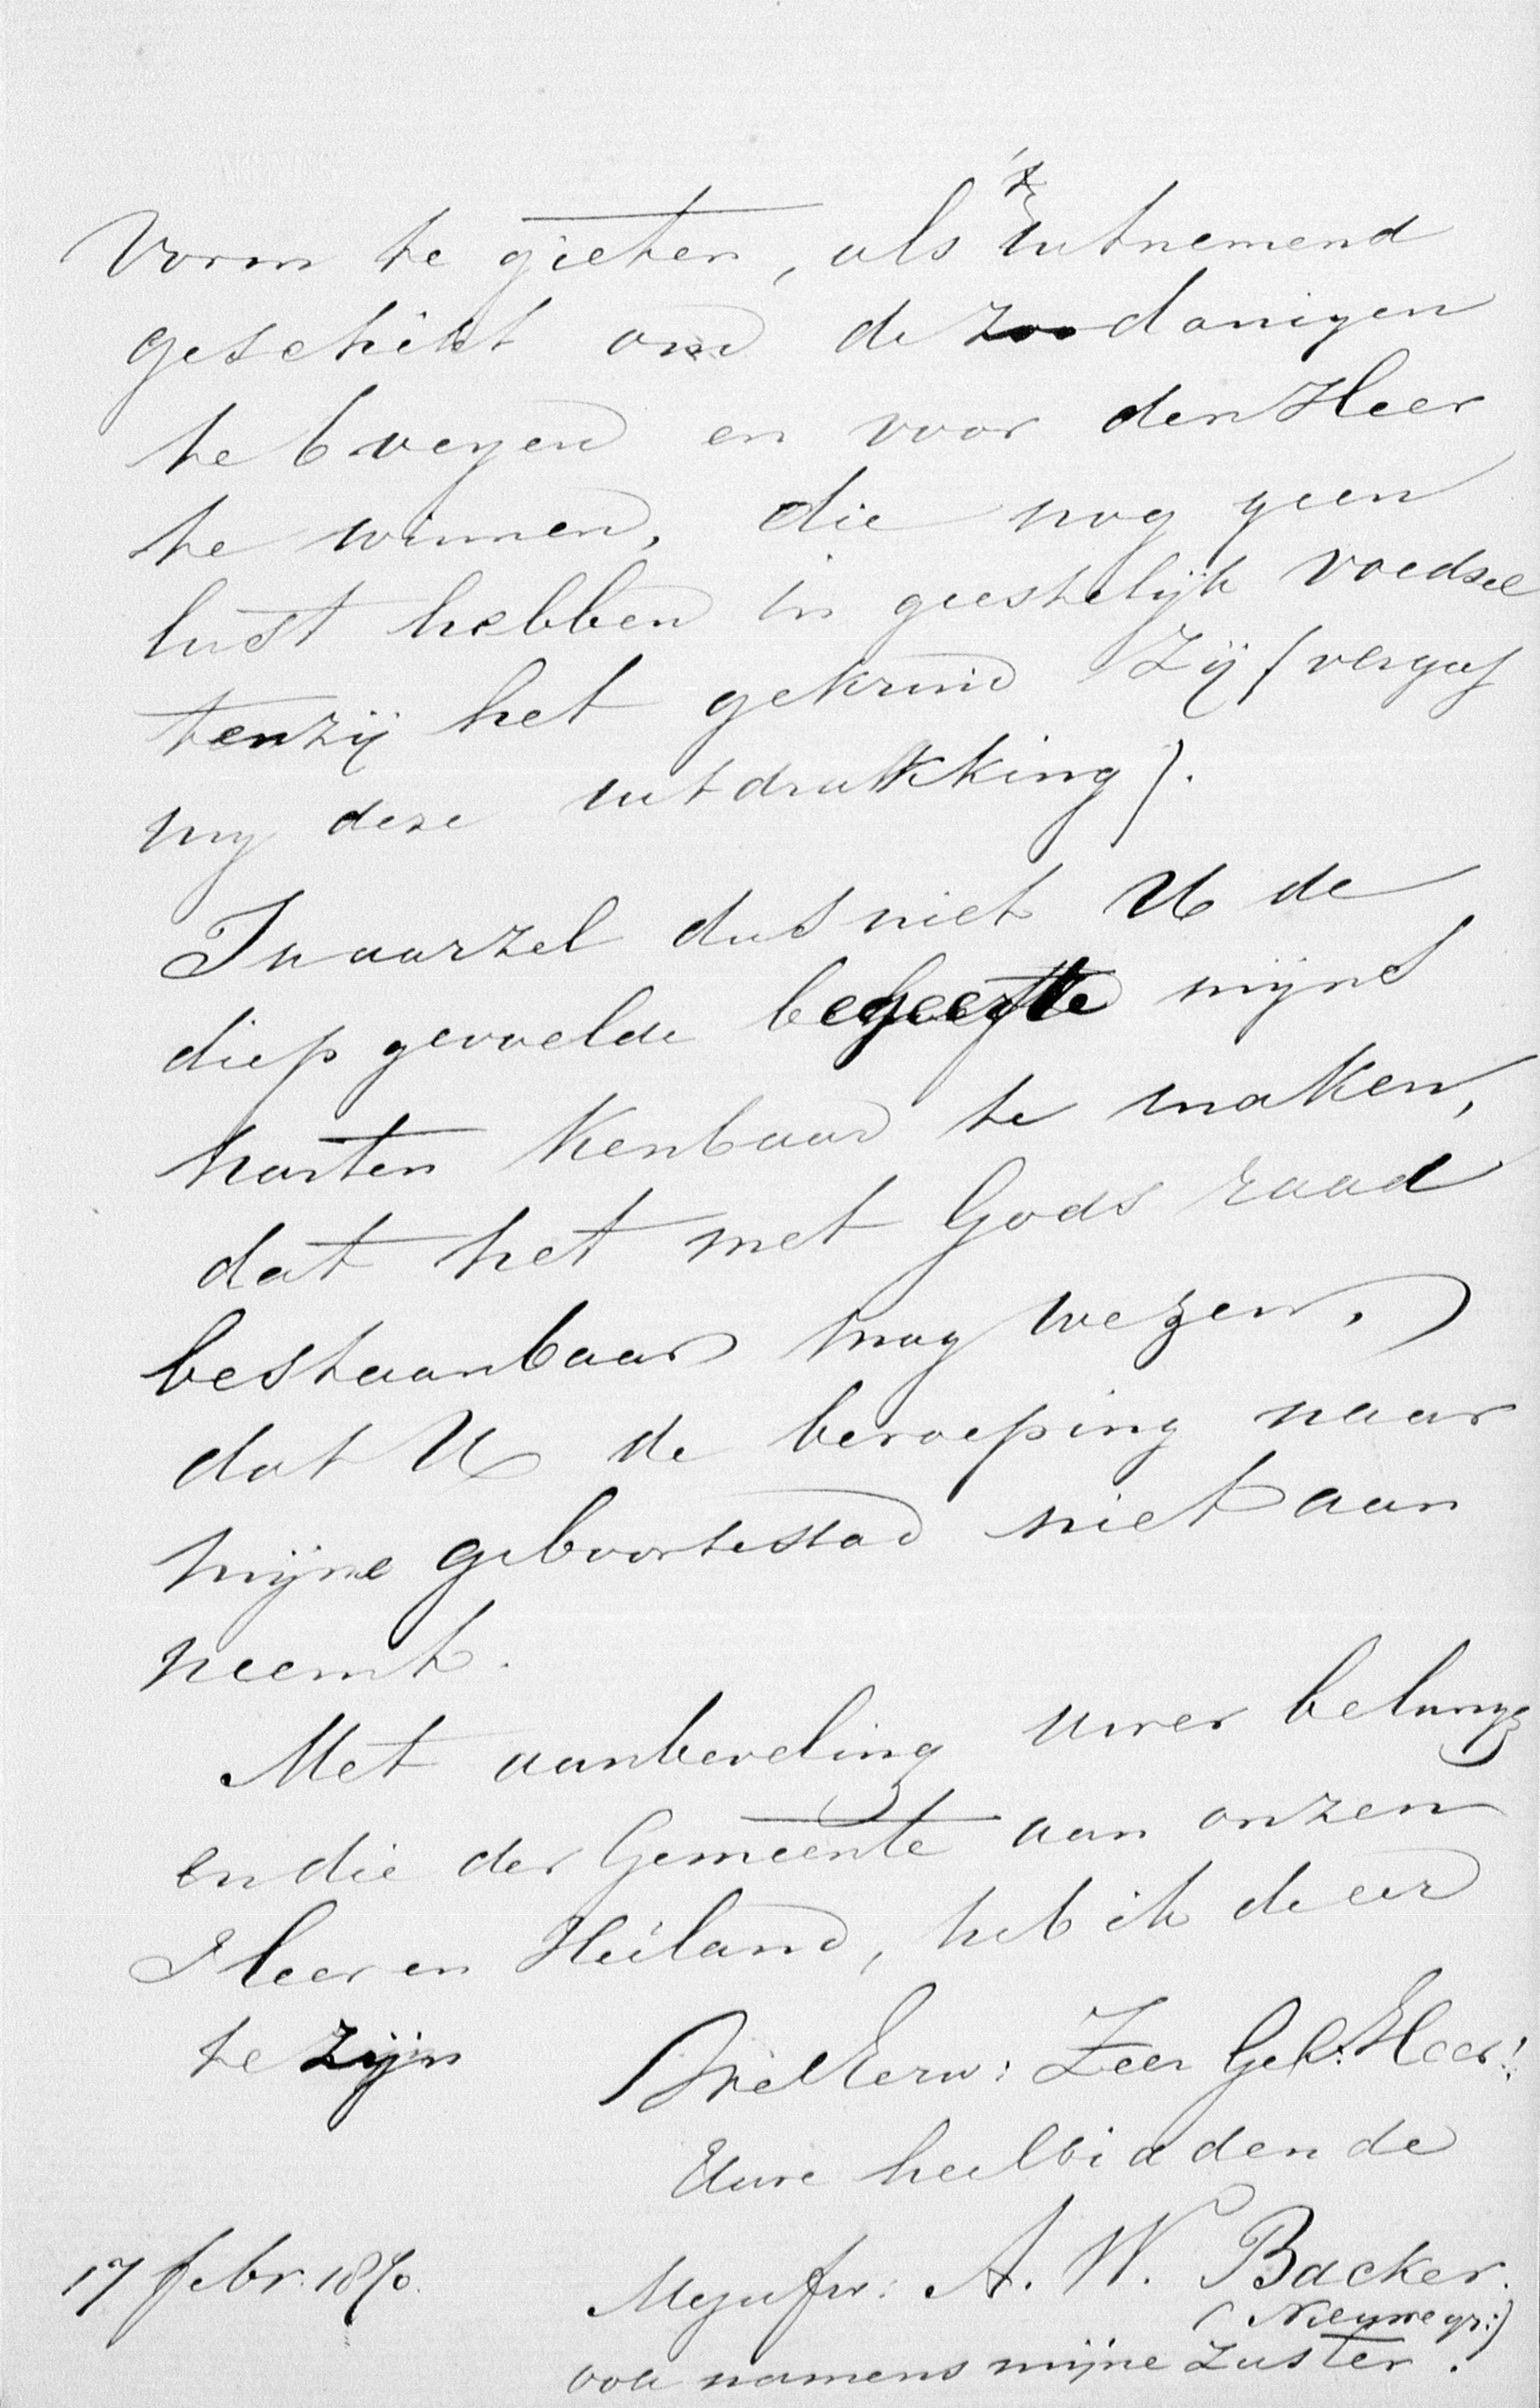 vorm te gieten, als uitnemend
geschikt om de zoodanigen
te bwegen en voor den Heer
te winnen, die nog geen
lust hebben in geestelijk voedsel
tenzij het gekruid zij (vergeef
my deze uitdrukking).
Ik aarzel dus niet U de
diep gevoelde begeerte mijns
harten kenbaar te maken,
dat het met Gods raad
bestaanbaar mag wezen,
dat U de beroeping naar
mijne geboortestad niet aan
neemt.
Met aanbeveling uwer belangen
en die der Gemeente aan onzen
Heer en Heiland, heb ik de eer
te zijn
WelEerw: Zeer Gel: Heer!
Uwe heilbiddende
17 febr. 1870.
Mejufvr: A. W. Backer.
(Nieuwe gr:)
ook namens mijne zuster.